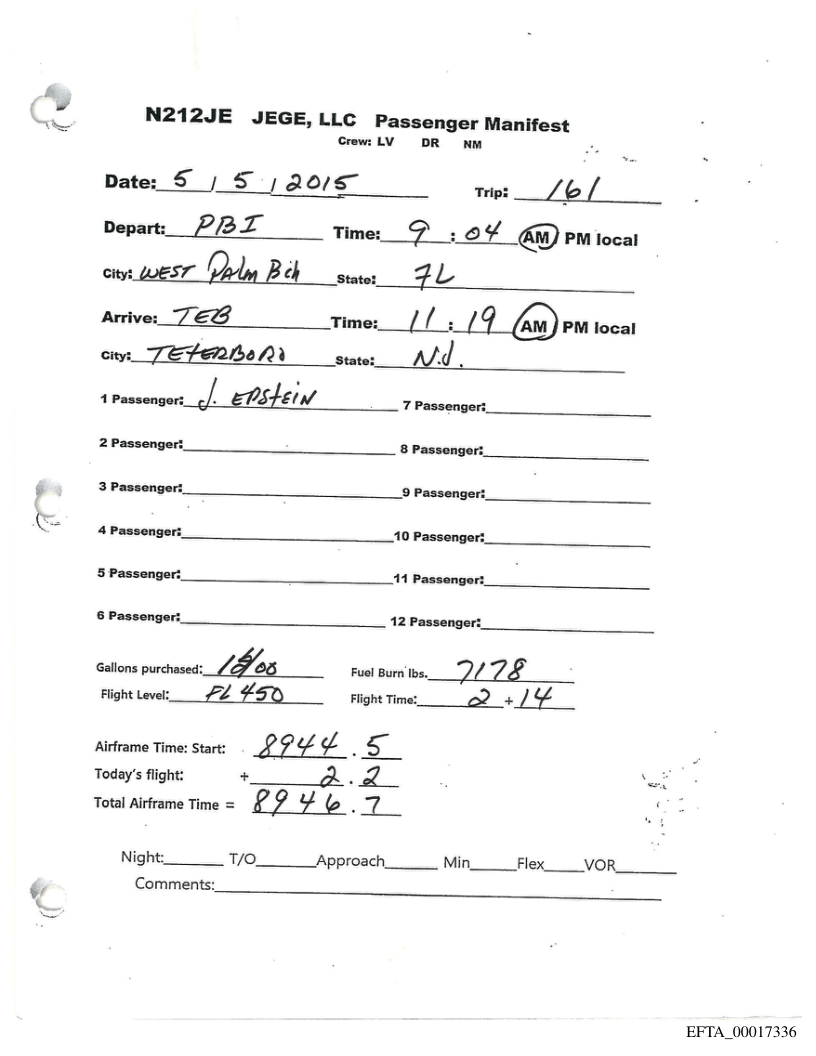 N212JE JEGE, LLC Passenger Manifest
Crew: LV DR NM
Date: 5 / 5 / 2015 Trip: 161
Depart: PBI Time: 9 : 04 AM PM local
City: WEST PALM Bch State: FL
Arrive: TEB Time: 11 : 19 AM PM local
City: TETERBORO State: N.J.
1 Passenger: J. EPStEiN 7 Passenger:
2 Passenger: 8 Passenger:
3 Passenger: 9 Passenger:
4 Passenger: 10 Passenger:
5 Passenger: 11 Passenger:
6 Passenger: 12 Passenger:
Gallons purchased: Fuel Burn lbs. 7178
Flight Level: FL 450 Flight Time: 2 + 14
Airframe Time: Start: 8944 . 5
Today's flight: + 2 . 2
Total Airframe Time = 8946 . 7
Night: T/O Approach Min Flex VOR
Comments:
EFTA_00017336